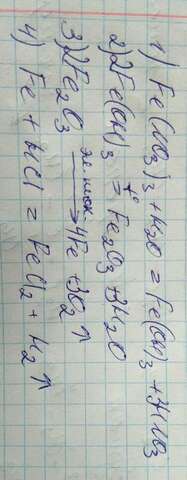 1) Fe(NO₃)₃ + H₂O = Fe(OH)₃ + 3HNO₃
2) 2Fe(OH)₃ =t°= Fe₂O₃ + 3H₂O
3) 2Fe₂O₃ эл.ток⟶ 4Fe + 3O₂↑
4) Fe + HCl = FeCl₂ + H₂↑